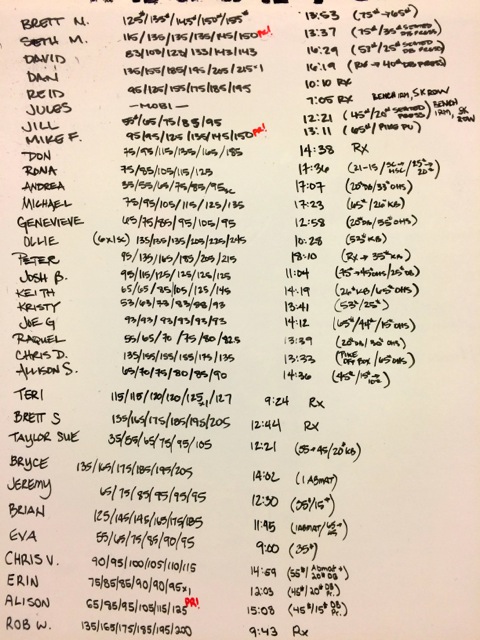 BRETT N. 125#/135#/145#/150#/155# 13:53 (75#→65#)
SETH M. 115/135/135/135/145/150 PR! 13:37 (75#/35# SEATED DB PRESS)
DAVID 83/103/123/133/143/143 16:29 (53#/25# SEATED DB PRESS)
DAN 135/155/185/195/205/215×1 16:19 (RX → 40# DB PRESS)
REID 95/125/155/175/185/195 10:10 RX
JULES —MOBI— 7:05 RX BENCH 1RM, SK ROW
JILL 55#/65/75/85/95 12:21 (45#/20# SEATED PRESS) BENCH 1RM, SK ROW
MIKE F. 95/95/125/135/145/150 PR! 13:11 (65#/PIKE PU)
DON 75/95/115/135/165/185 14:38 RX
RONA 75/85/105/115/125 17:36 (21-15/
ANDREA 35/55/65/75/85/95 SC 17:07 (20# DB/33# OHS)
MICHAEL 75/95/105/115/125/135 17:23 (65#/26# KB)
GENEVIEVE 65/75/85/95/105/95 12:58 (20# DB/55# OHS)
OLLIE (6x1SC) 135/135/135/205/225/245 10:28 (53# KB)
PETER 95/135/165/185/205/215 18:10 (RX → 35# KB)
JOSH B. 95/115/125/125/125/125 11:04 (75→45 OHS/25# DB)
KEITH 65/65/85/105/125/145 14:19 (26# KB/65# OHS)
KRISTY 53/63/73/83/88/93 13:41 (53#/25#)
JOE G 93/93/93/93/93/93 14:12 (65#/44#/15# OHS)
RAQUEL 55/65/70/75/80/825 13:39 (20# DB/30# OHS)
CHRIS D. 135/155/155/155/175/135 13:33 (PIKE OFF BOX/65# OHS)
ALLISON S. 65/70/75/80/85/90 14:36 (45#/15#→10#)
TERI 115/115/120/120/125 x1/127 9:24 Rx
BRETT S 135/165/175/185/195/205 12:44 Rx
TAYLOR SUE 35/55/65/75/95/105 12:21 (55→45/20# KB)
BRYCE 135/165/175/185/195/205 14:02 (1 ABMAT)
JEREMY 65/75/85/95/95/95 12:30 (35#/15#)
BRIAN 125/145/145/165/175/185 11:45 (1 ABMAT/65→45)
EVA 55/65/75/85/90/95 9:00 (35#)
CHRIS V. 90/95/100/105/110/115 14:59 (55#/ABMAT + 20# DB)
ERIN 75/85/85/90/90/95×1 12:03 (45#/20# DB Pr.)
ALISON 65/85/95/105/115/125 PR! 15:08 (45#/15# DB Pr.)
ROB W. 135/165/175/185/195/200 9:43 Rx